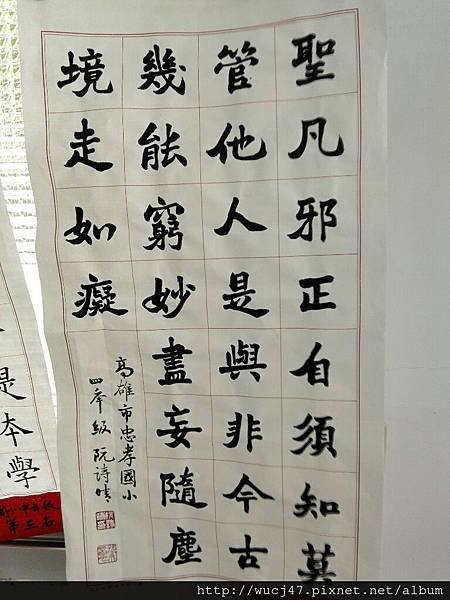 聖凡邪正自須知莫
管他人是與非今古
幾能窮妙盡妄隨塵
境走如癡
高雄市忠孝國小
四年級 阮詩晴
是本學
第三名
http://wucj47.pixnet.net/album